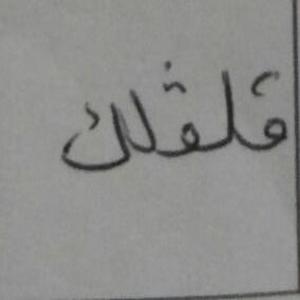 قلقلك